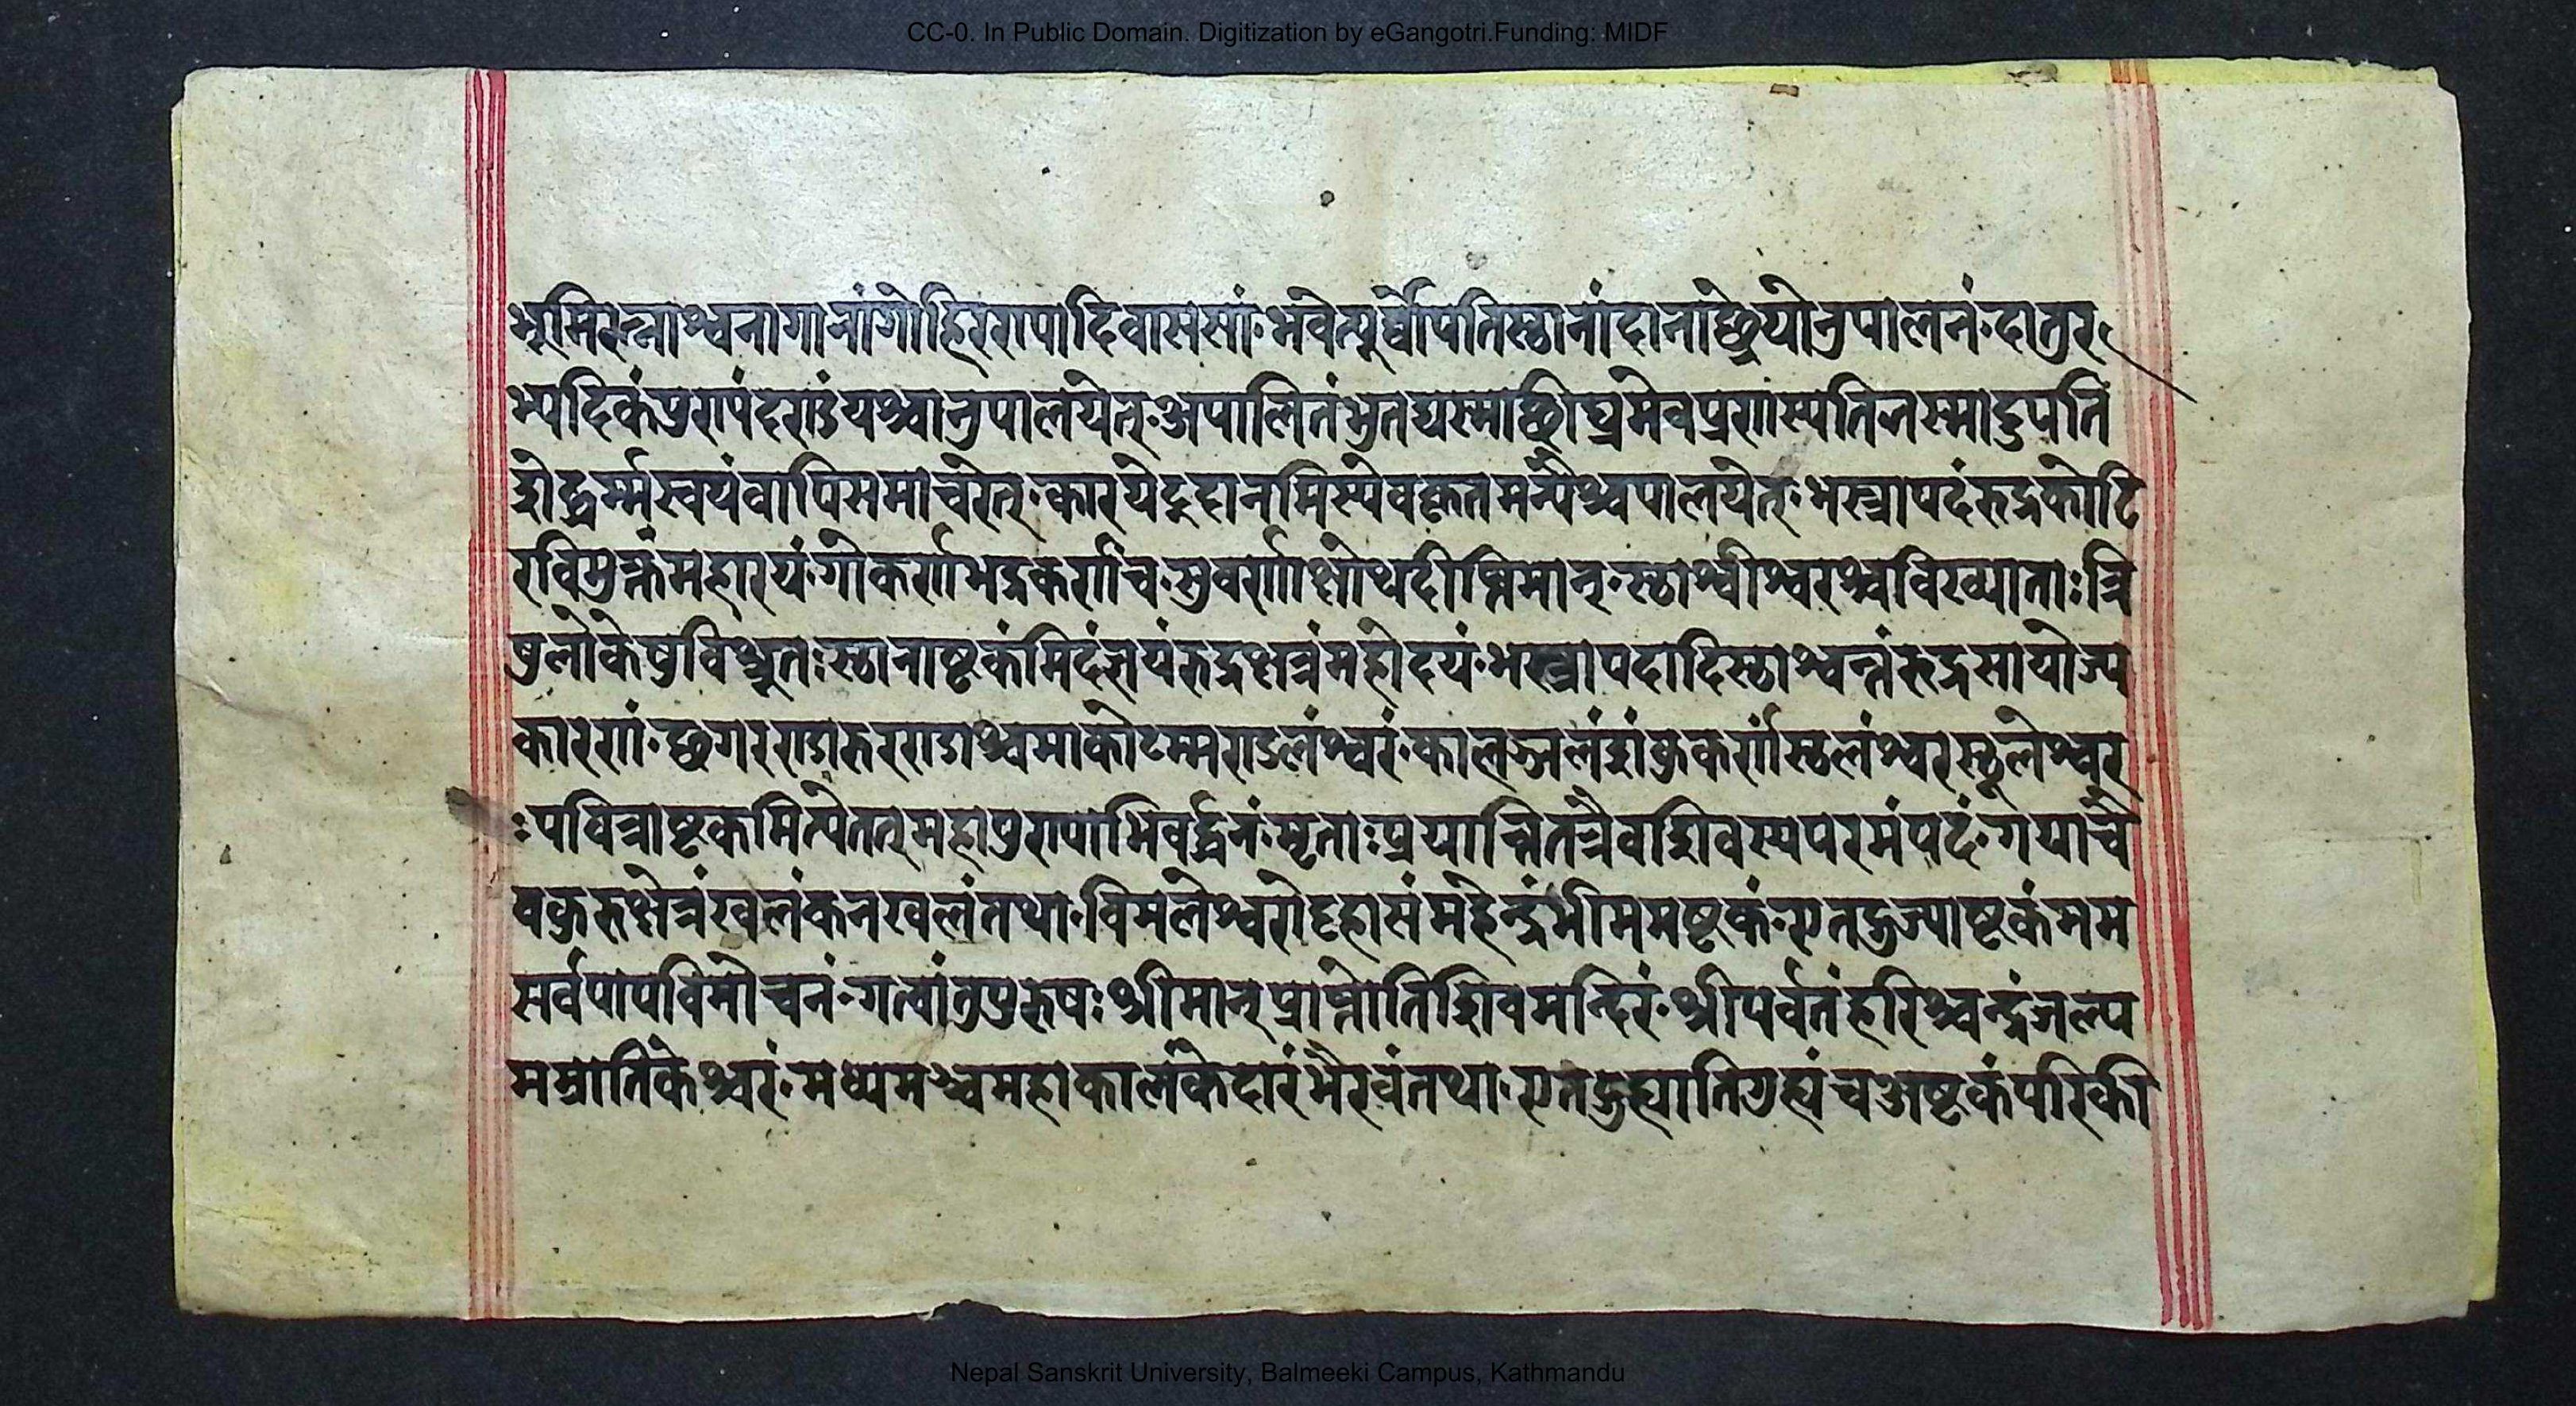 CC-0. In Public Domain. Digitization by eGangotri.Funding: MIDF
भूमिरत्नाश्वनागानांगोहिरण्यादिवाससां॰भवेत्पूर्वोपतिस्ठानांदानाछ्रेयोनुपालनं॰दातुर
भ्यदिकंपुण्यंदण्डंयश्चानुपालयेत्॰अपालितंभुतद्यस्माछीघ्रमेवप्रणस्यतितस्मादुपति
द्धोद्धर्म्मस्वयंवापिसमाचरेत्॰कारयेद्दानमिस्येवकृतमन्यैश्चपालयेत्॰भस्त्रापदंरुद्रकोटि
रविमुक्तंमहारयं॰गोकर्णाभद्रकर्णाच॰सुवर्णाक्षोथदीप्तिमान्॰स्ठाश्वीश्वरश्चविख्याताःत्रि
षुलोकेषुविश्रुतःस्ठानाष्टकंमिदंज्ञयंरुद्रक्षत्रंमहोदयं॰भस्त्रापदादिस्ठाश्वन्तंरुद्रसायोज्य
कारणं॰छगरण्डारुरण्डाश्चमाकोटम्मण्डलंश्वरं॰कालञ्जलंशंकुकर्णंस्ठलंश्वरस्थूलेश्वर
ःपवित्राष्टकमित्येतत्महापुण्याभिवर्द्धनं॰मृताःप्रयान्तितत्रैवशिवस्यपरमंपदं॰गयाचै
वकुरुक्षेत्रंखलंकनखलंतथा॰विमलेश्वरोट्टहासंमहेन्द्रंभीममष्टकं॰एतद्गुज्याष्टकंमम
सर्वपापविमोचनं॰गत्वांतुपुरुषःश्रीमान्प्राप्नोतिशिवमन्दिरं॰श्रीपर्वतंहरिश्चन्द्रंजल्प
मम्रातिकेश्वरं॰मध्यमश्चमहाकालंकेदारंभैरवंतथा॰एतद्गुह्यातिगुह्यंचअष्टकंपरिकी
Nepal Sanskrit University, Balmeeki Campus, Kathmandu